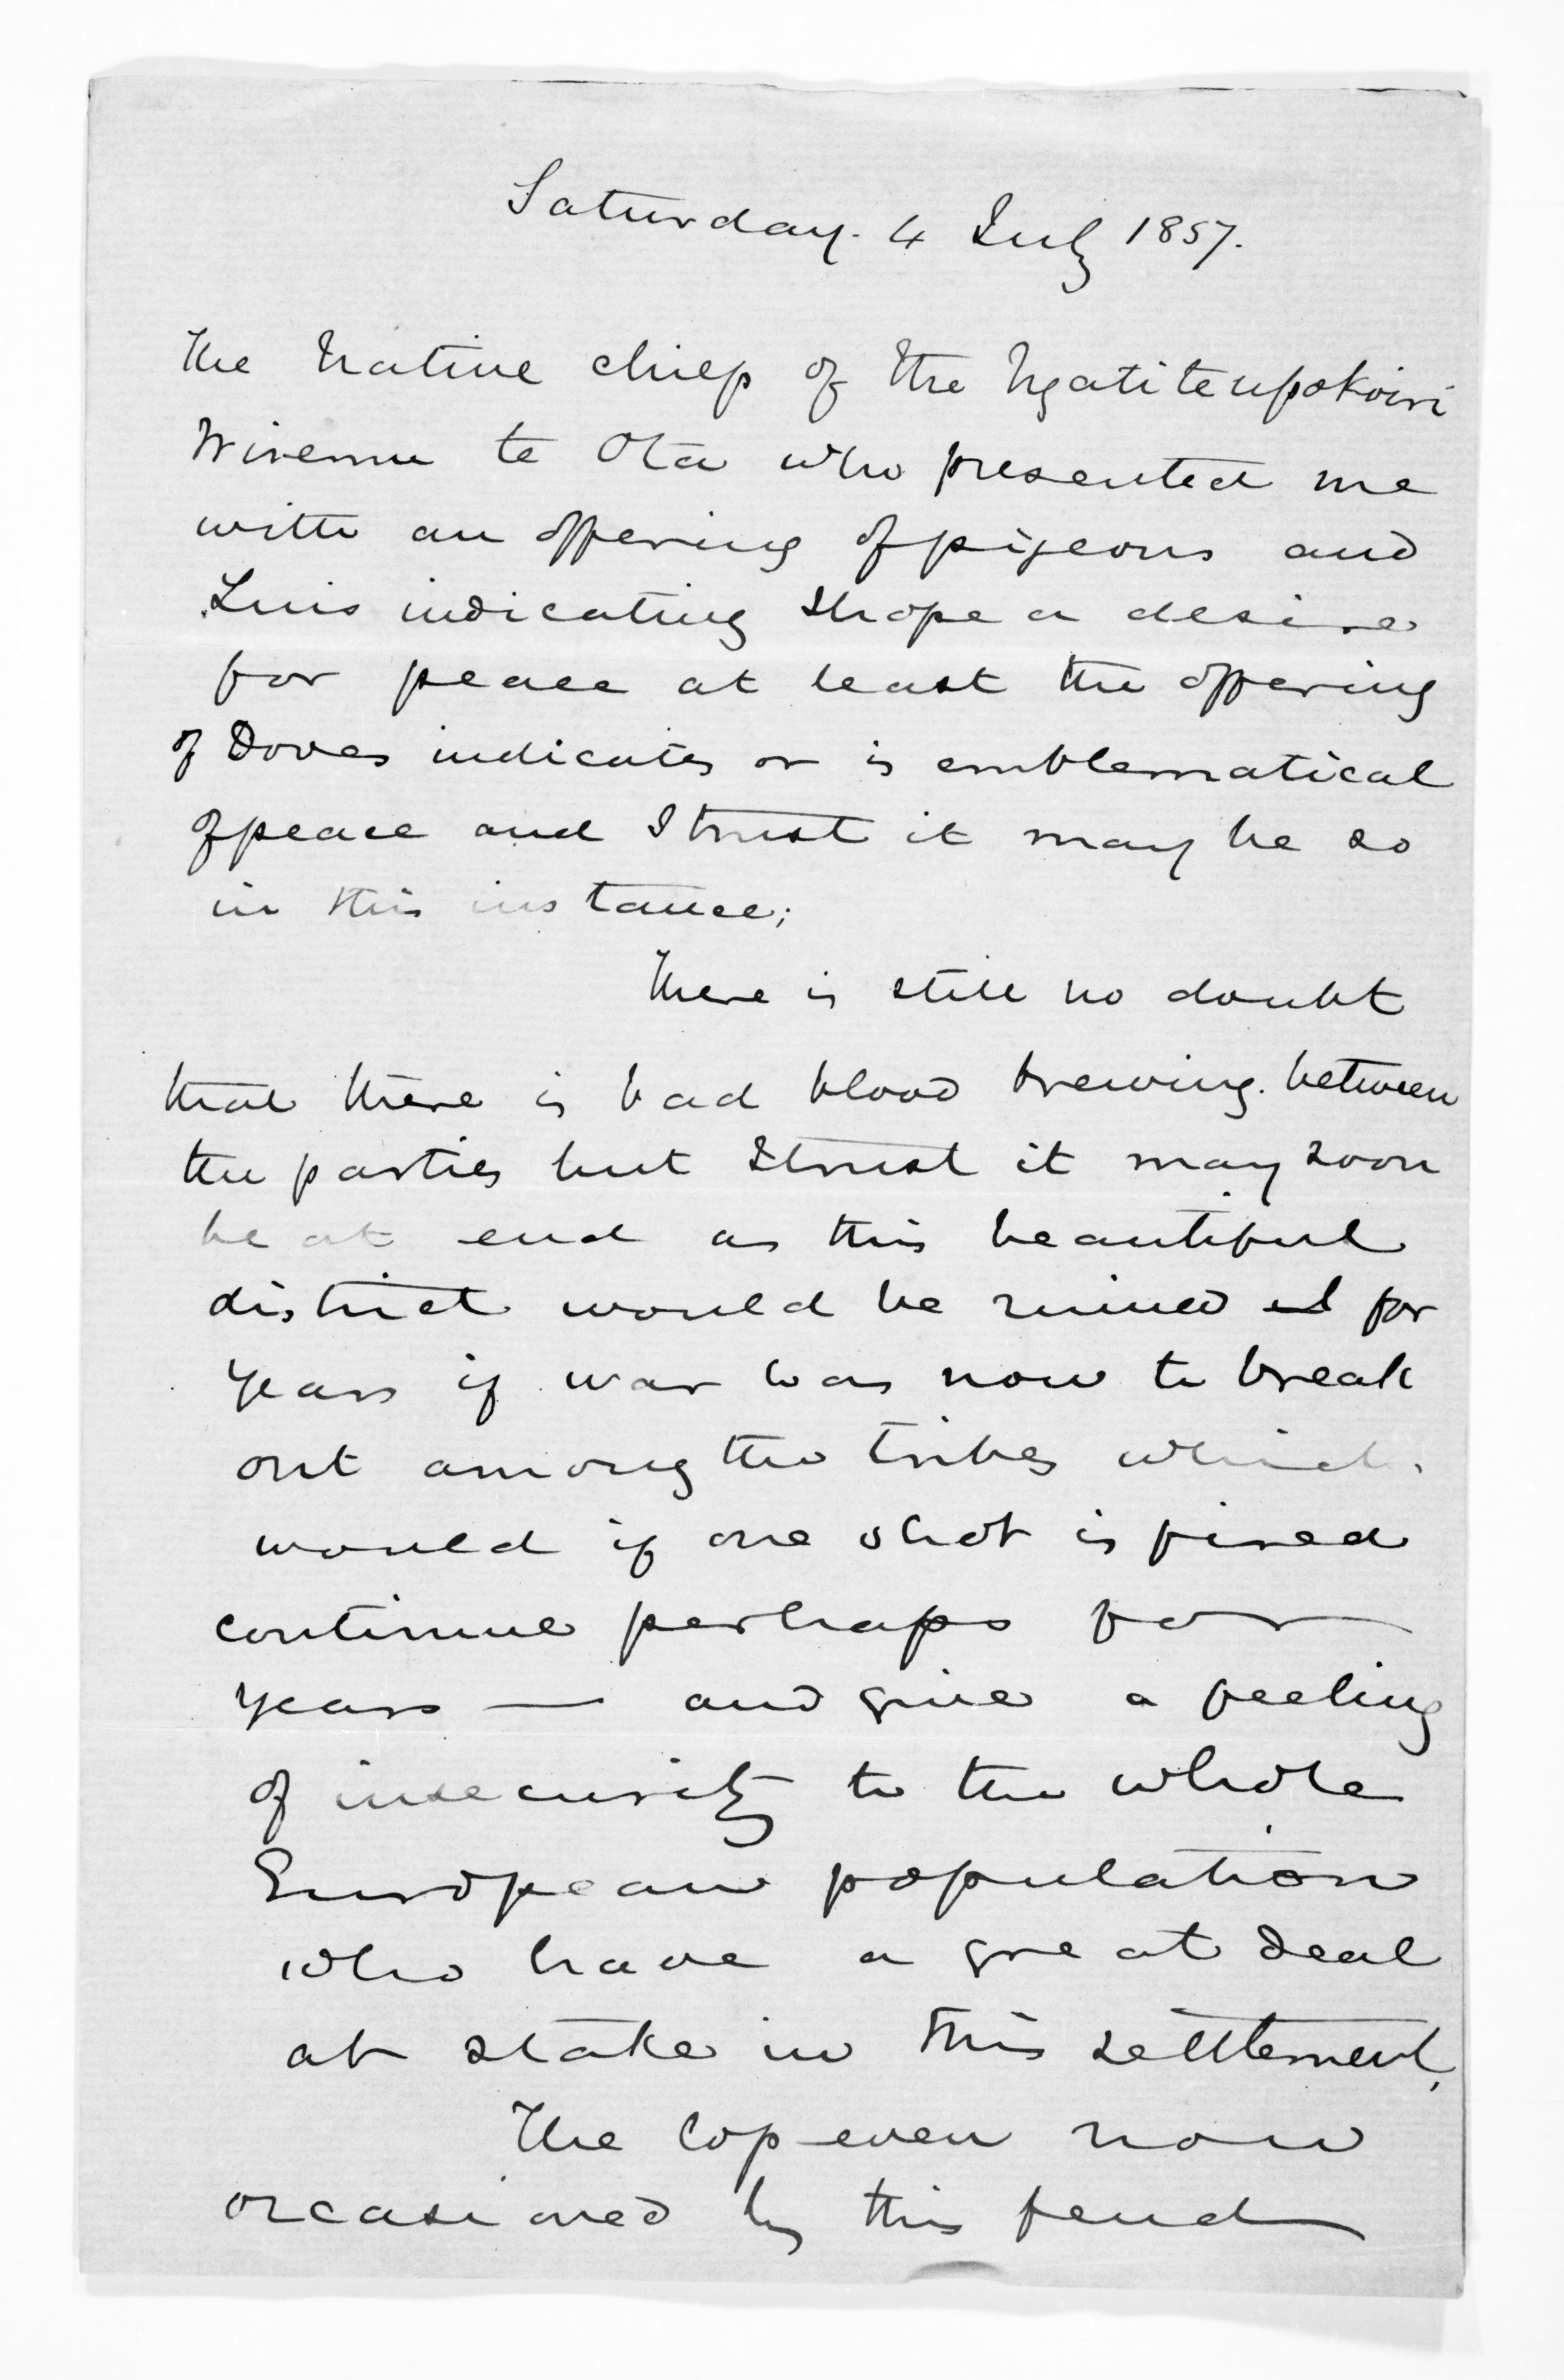 Saturday. 4 July 1857.
The Native chief of the Ngatiteupokoiri
Wiremu te Ota who presented me
with an offering of pigeons and
Tuis indicating I hope a desire
for peace at least the offering
of Doves indicates or is emblematical
of peace and I trust it may be so
in this instance;
There is still no doubt
that there is bad blood brewing. between
the parties but I trust it may soon
be at end as this beautiful
district would be ruined for
years if war was now to break
out among the tribes which
would if one shot is fired
continue perhaps for
years — and give a feeling
of insecurity to the whole
European population
who have a great deal
at stake in this settlement,
The loss even now
occasioned by this feud